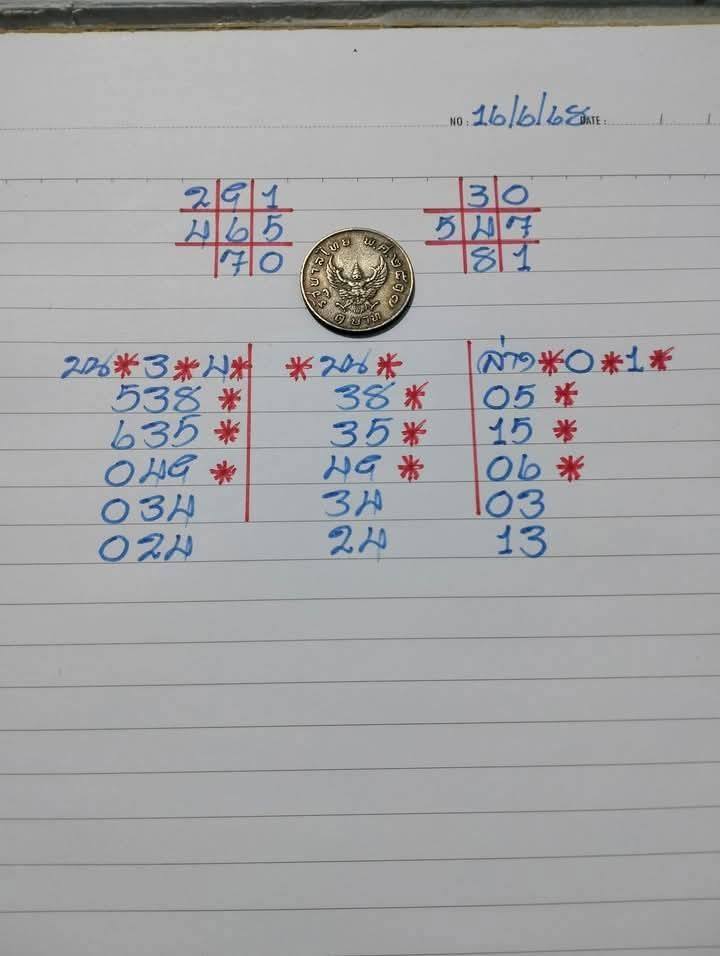 NO : 16/6/68 DATE :
2 9 1
4 6 5
7 0
3 0
5 4 7
8 1
รัฐบาลไทย พ.ศ.๒๕๑๗
๑ บาท
บน * 3 * 4 *
538 *
635 *
049 *
034
024
* บน *
38 *
35 *
49 *
34
24
ล่าง * 0 * 1 *
05 *
15 *
06 *
03
13